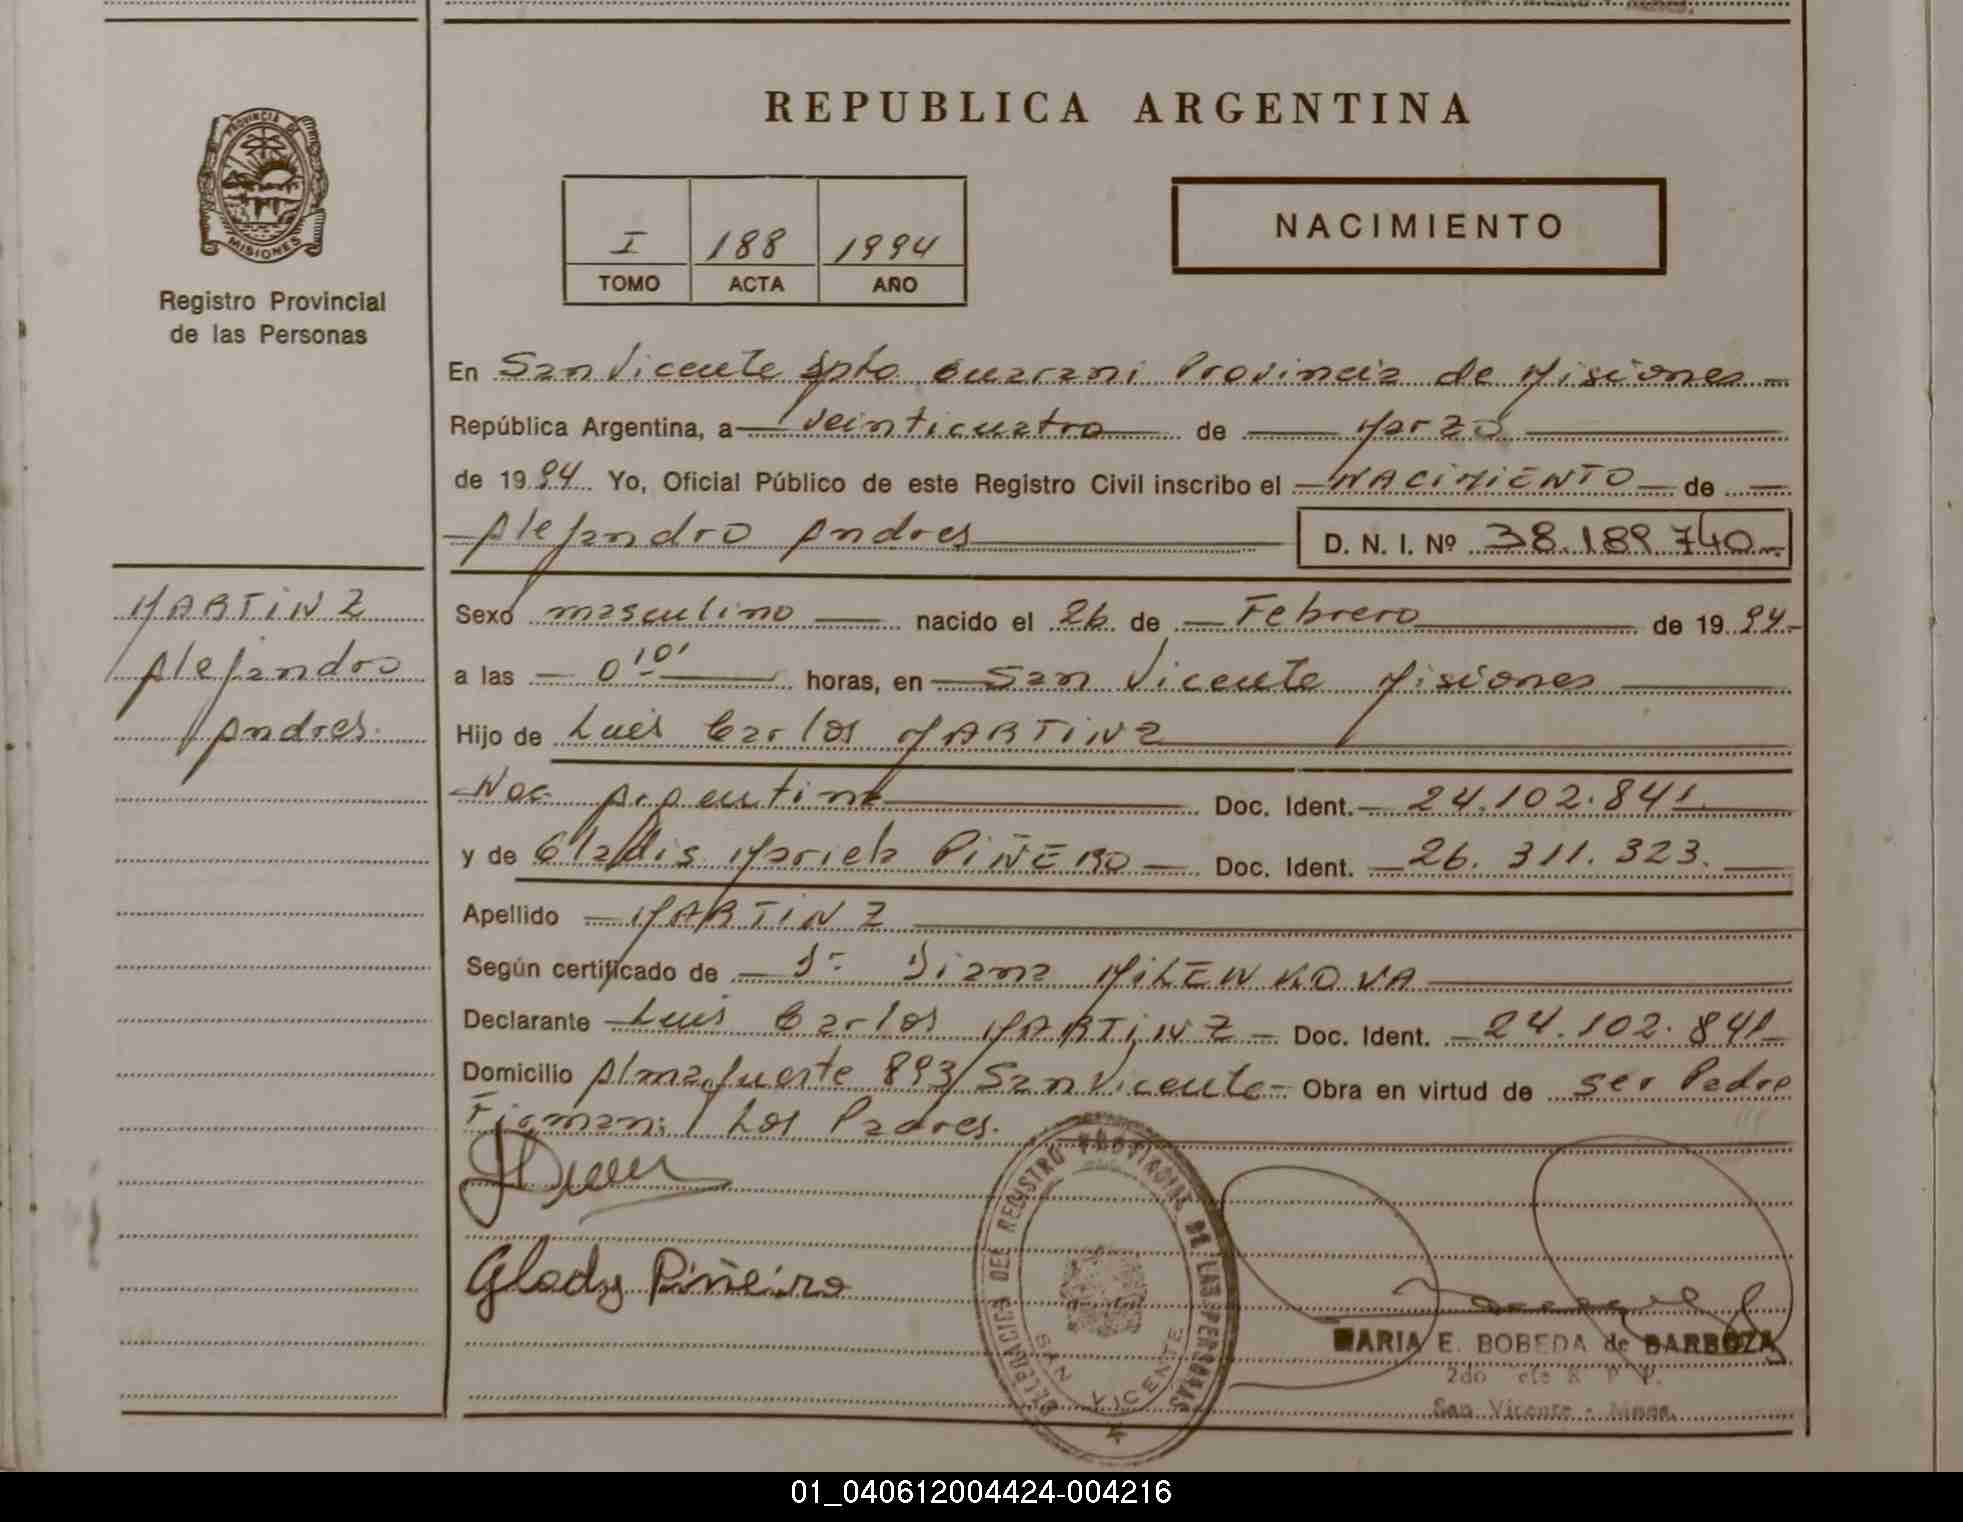 REPUBLICA ARGENTINA
PROVINCIA DE MISIONES
Registro Provincial
de las Personas
I 188 1994
TOMO ACTA AÑO
NACIMIENTO
En San Vicente Dpto Guarani Provincia de Misiones
República Argentina, a veinticuatro de Marzo
de 1994 Yo, Oficial Público de este Registro Civil inscribo el NACIMIENTO de
Alejandro Andres D. N. I. Nº 38.189.740
MARTINZ
Alejandro
Andres.
Sexo masculino nacido el 26 de Febrero de 1994
a las 0'10' horas, en San Vicente Misiones
Hijo de Luis Carlos MARTINZ
Nac. Argentina Doc. Ident. 24.102.841
y de Gladis Mariela PIÑERO Doc. Ident. 26.311.323.
Apellido MARTINZ
Según certificado de Dr. Diana MILENKOVA
Declarante Luis Carlos MARTINZ Doc. Ident. 24.102.841
Domicilio Almafuerte 893 San Vicente Obra en virtud de ser Padre
Firman: Los Padres.
Glady Piñeiro
DELEGACION DEL REGISTRO PROVINCIAL DE LAS PERSONAS
SAN VICENTE
MARIA E. BOBEDA de BARBOZA
San Vicente - Mnes.
01_040612004424-004216